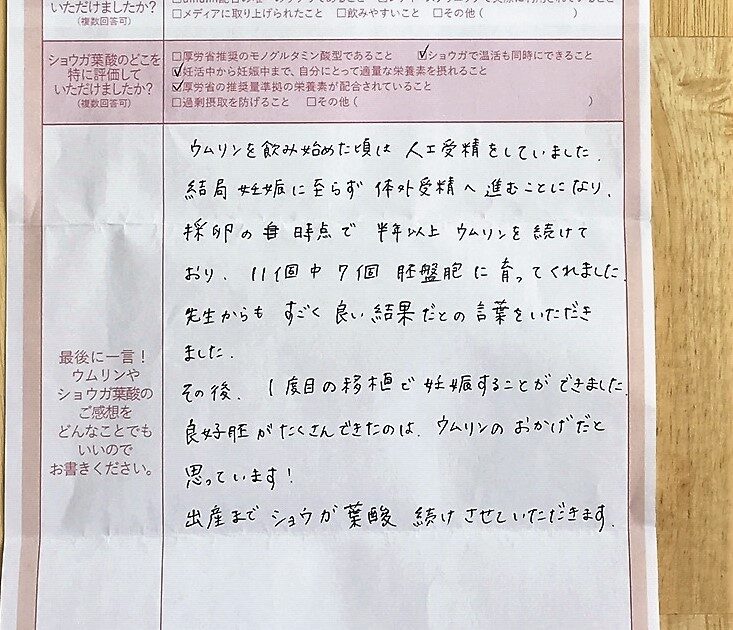 いただけましたか?
(複数回答可)
□メディアに取り上げられたこと □飲みやすいこと □その他( )
ショウガ葉酸のどこを
特に評価して
いただけましたか?
(複数回答可)
□厚労省推奨のモノグルタミン酸型であること ☑ショウガで温活も同時にできること
☑妊活中から妊娠中まで、自分にとって適量な栄養素を摂れること
☑厚労省の推奨量準拠の栄養素が配合されていること
□過剰摂取を防げること □その他( )
最後に一言!
ウムリンや
ショウガ葉酸の
ご感想を
どんなことでも
いいので
お書きください。
ウムリンを飲み始めた頃は 人工受精をしていました.
結局 妊娠に至らず 体外受精へ進むことになり、
採卵の 時点で 半年以上 ウムリンを続けて
おり、11個中 7個 胚盤胞に育ってくれました.
先生からも すごく良い結果だとの言葉をいただき
ました.
その後、1度目の移植で妊娠することができました.
良好胚がたくさんできたのは、ウムリンの おかげだと
思っています!
出産まで ショウガ葉酸 続けさせていただきます.